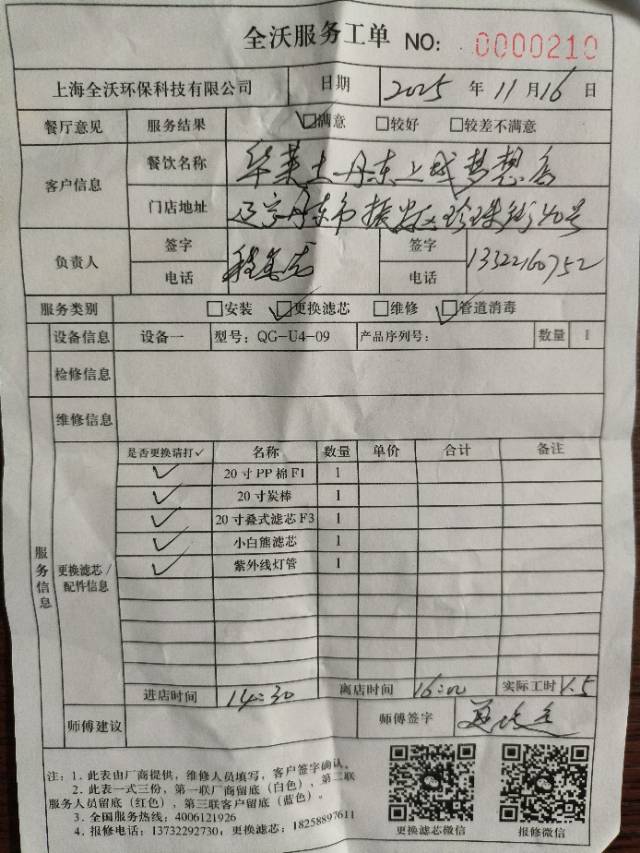 全沃服务工单 NO: 0000210
上海全沃环保科技有限公司 日期 2025 年 11 月 16 日
餐厅意见 服务结果 ☑满意 □较好 □较差不满意
客户信息 餐饮名称 华莱士丹东上城梦想店
门店地址 辽宁丹东市振兴区珍珠街40号
负责人 签字 签字
电话 电话 13322160752
服务类别 □安装 ☑更换滤芯 □维修 ☑管道消毒
设备信息 设备一 型号: QG-U4-09 产品序列号: 数量 1
检修信息
维修信息
服务信息
更换滤芯/配件信息
是否更换请打✓ 名称 数量 单价 合计 备注
✓ 20寸PP棉F1 1
✓ 20寸炭棒 1
✓ 20寸叠式滤芯F3 1
✓ 小白熊滤芯 1
✓ 紫外线灯管 1
进店时间 14:30 离店时间 16:00 实际工时 1.5
师傅建议 师傅签字
注: 1. 此表由厂商提供, 维修人员填写, 客户签字确认。
2. 此表一式三份, 第一联厂商留底(白色), 第二联
服务人员留底(红色), 第三联客户留底(蓝色)。
3. 全国服务热线: 4006121926
4. 报修电话: 13732292730, 更换滤芯: 18258897611
更换滤芯微信 报修微信